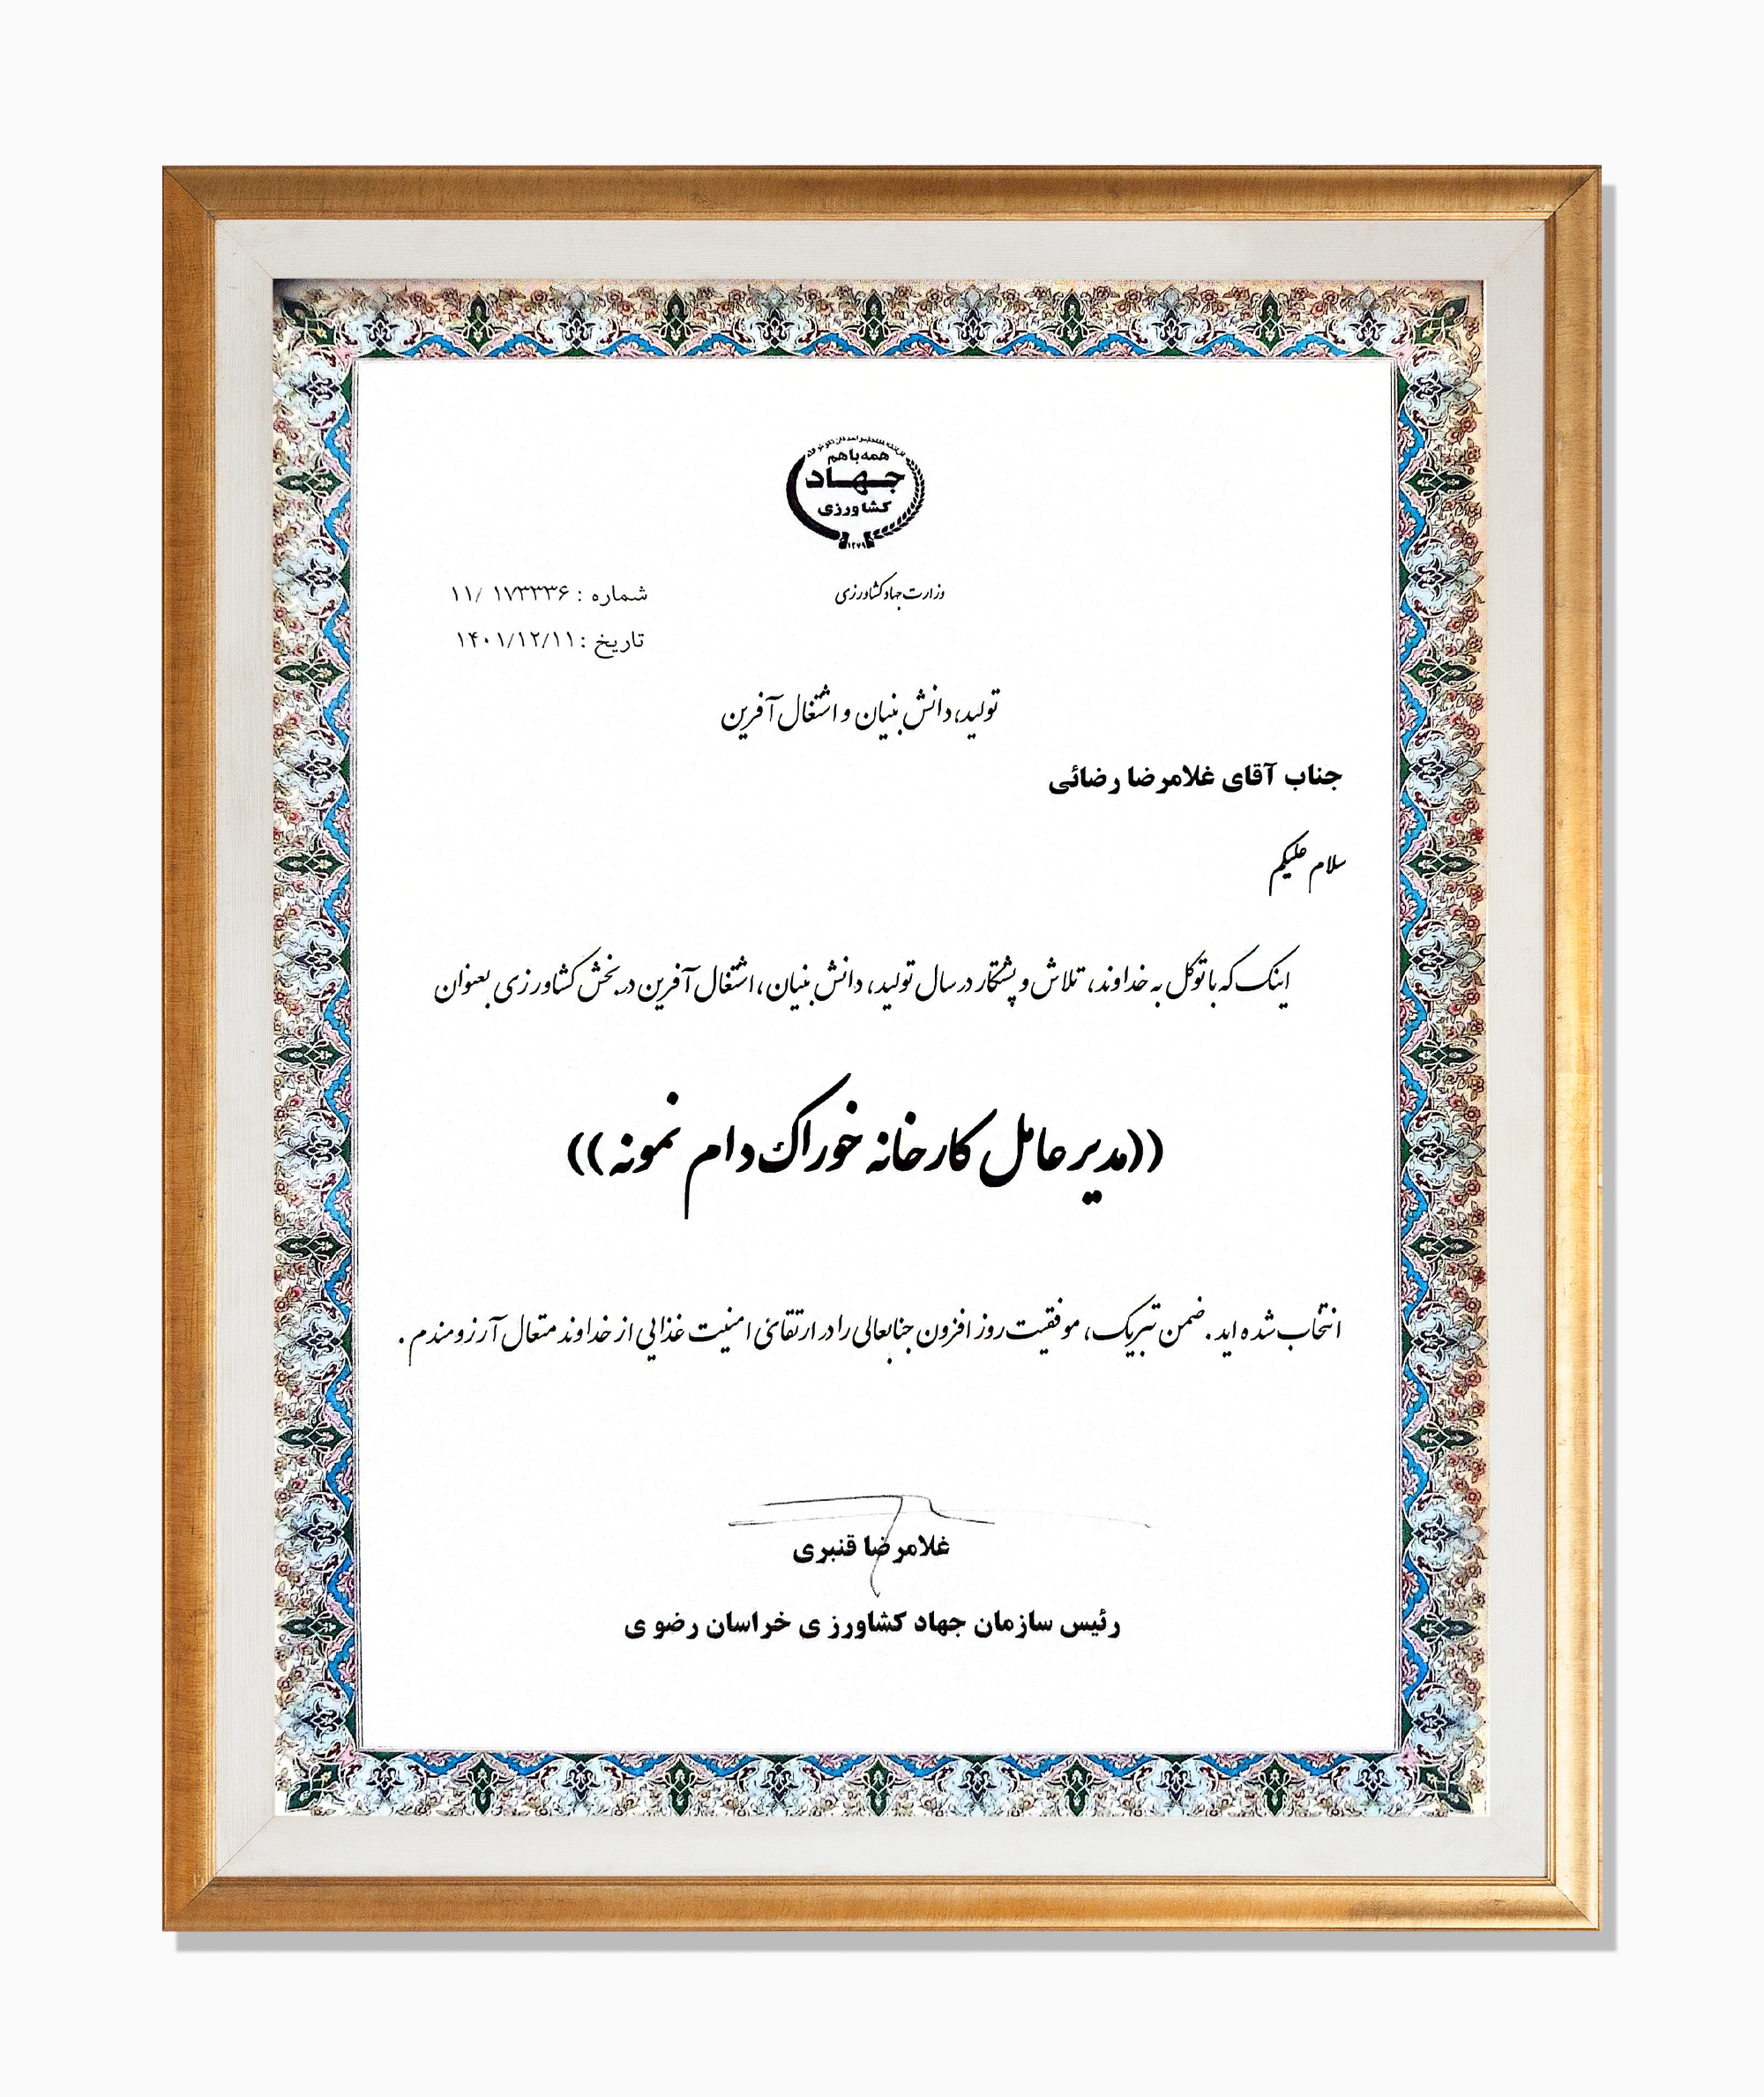 همه با هم
جهاد
کشاورزی
۱۳۷۹
وزارت جهاد کشاورزی
شماره : ۱۷۳۳۳۶ /۱۱
تاریخ : ۱۴۰۱/۱۲/۱۱
تولید، دانش بنیان و اشتغال آفرین
جناب آقای غلامرضا رضائی
سلام علیکم
اینک که با توکل به خداوند، تلاش و پشتکار در سال تولید، دانش بنیان، اشتغال آفرین در بخش کشاورزی بعنوان
((مدیر عامل کارخانه خوراک دام نمونه))
انتخاب شده اید. ضمن تبریک، موفقیت روز افزون جنابعالی را در ارتقائ امنیت غذایی از خداوند متعال آرزومندم .
غلامرضا قنبری
رئیس سازمان جهاد کشاورزی خراسان رضوی